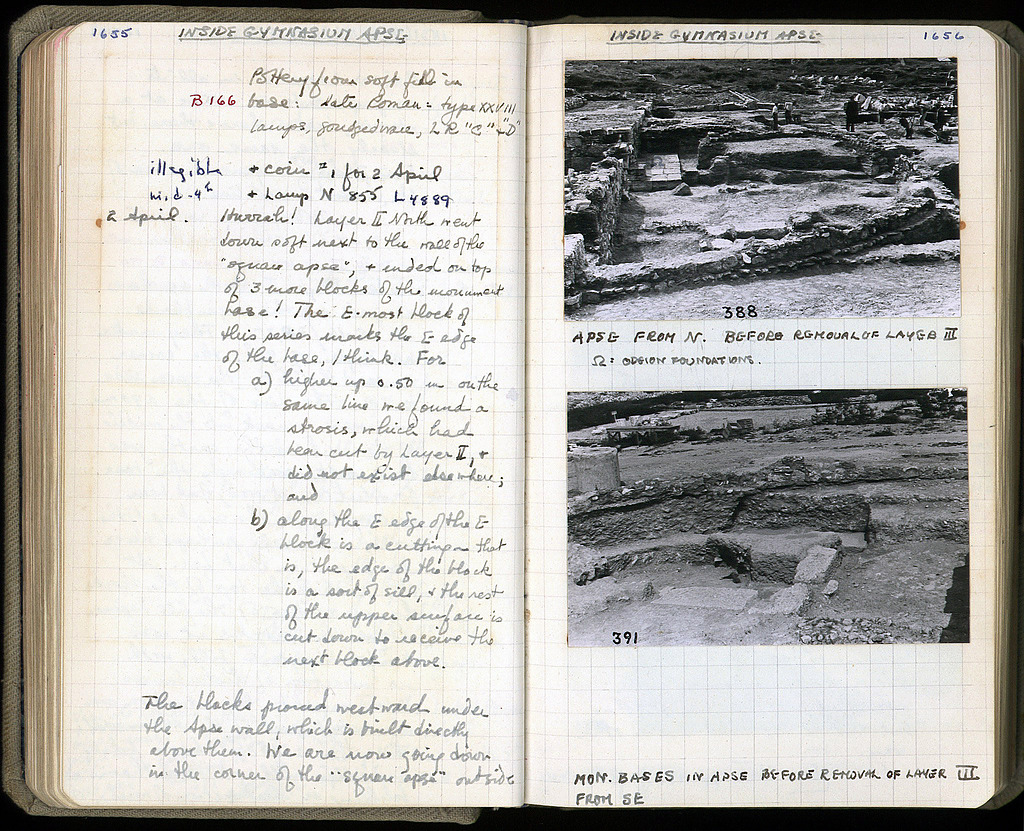 1655 INSIDE GYMNASIUM APSE
Pottery from soft fill in
B 166 base: Late Roman: type XXVIII
lamps, gouged ware, L R "C" + "D"
illegible + coin #1 for 2 April
mid-4th + Lamp N 855 L 4889
2 April. Hurrah! Layer II North went
down soft next to the wall of the
"square apse", + ended on top
of 3 more blocks of the monument
base! The E-most block of
this series marks the E edge
of the base, I think. For
a) higher up 0.50 m on the
same line we found a
strosis, which had
been cut by Layer II, +
did not exist elsewhere;
and
b) along the E edge of the E
block is a cutting - that
is, the edge of the block
is a sort of sill, + the rest
of the upper surface is
cut down to receive the
next block above.
The blocks proceed westward under
the Apse wall, which is built directly
above them. We are now going down
in the corner of the "square apse" outside
INSIDE GYMNASIUM APSE 1656
388
APSE FROM N. BEFORE REMOVAL OF LAYER III
Ω: ODEION FOUNDATIONS.
391
MON. BASES IN APSE BEFORE REMOVAL OF LAYER III
FROM SE